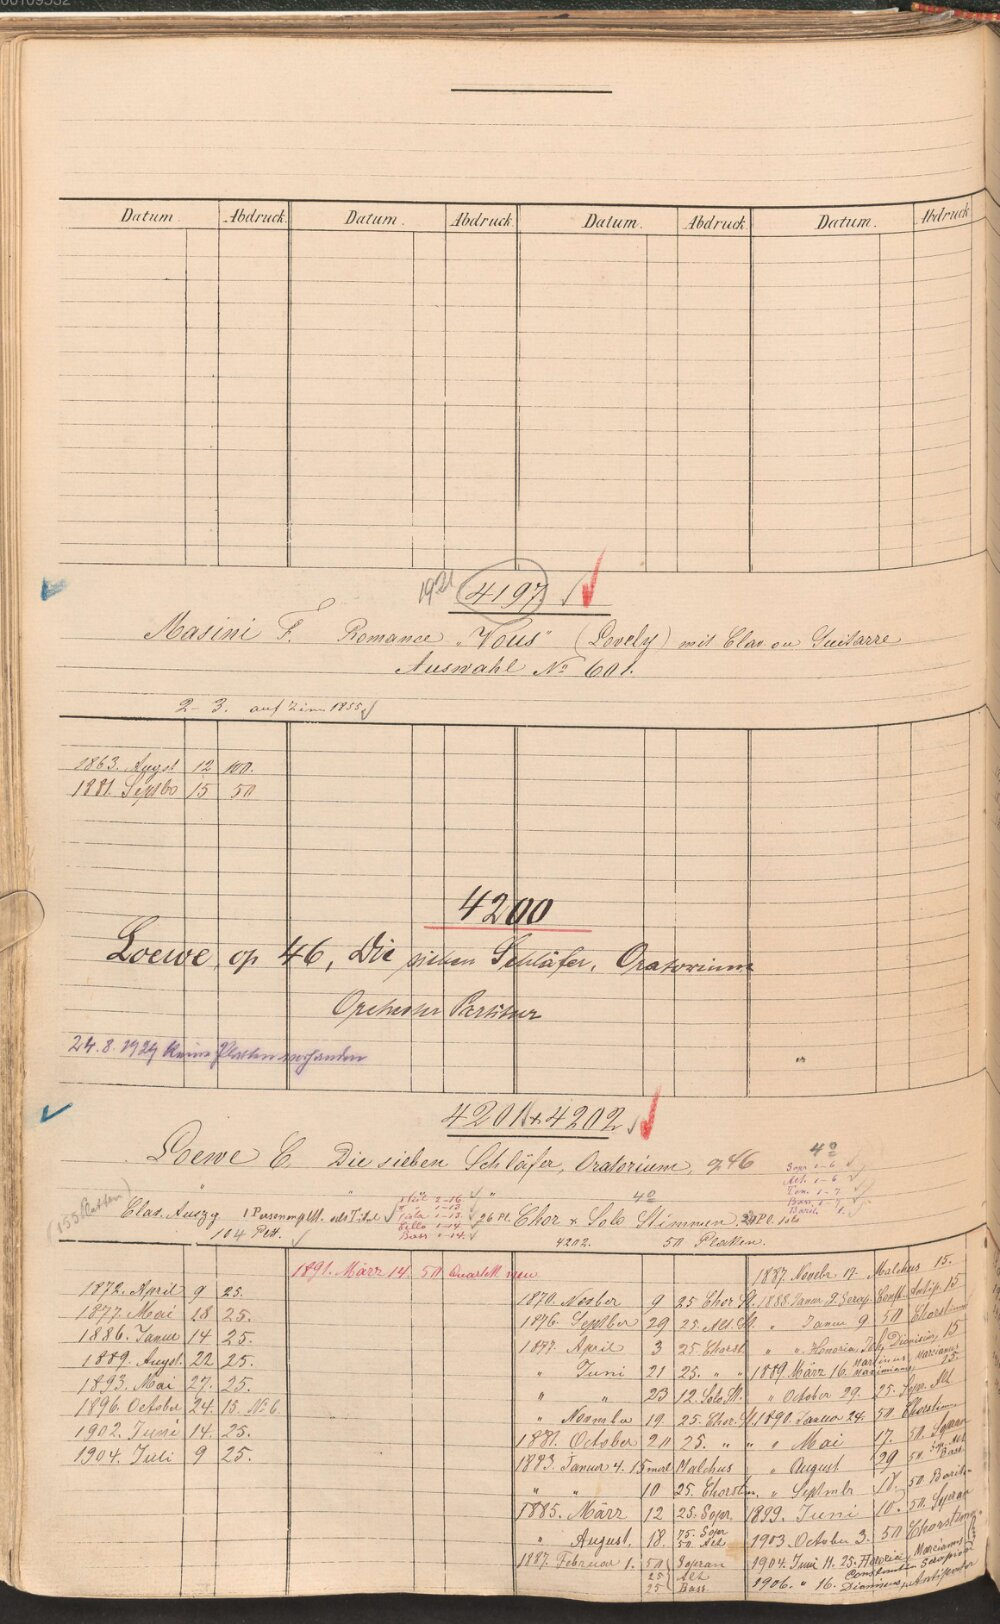 00109332
Datum. Abdruck Datum. Abdruck Datum. Abdruck Datum. Abdruck
1921 4197
Masini F. Romance „Vous" (Lovely) mit Clav ou Guitarre
Auswahl No 601.
2-3. auf Zinn 1855
1863. Augst 12 100.
1881. Septbo 15 50
4200
Loewe, op 46, Die sieben Schläfer, Oratorium
Orchester Partitur
24.8.1929 Keine Platten vorhanden
4201 & 4202
Loewe C. Die sieben Schläfer, Oratorium, op 46
4o
Sopr 1-6
Alt. 1-6
Ten. 1-7
Bass. 1-7
Barit. 1.
(155 Platten)
Clav. Auszg 1 Personen als Titel
104 Plt.
Cello 1-14
Bass 1-14.
26 Pl. Chor & Solo Stimmen.
4o
4202. 50 Platten.
1891. März 14. 50 Quartett neu
1872. April 9 25.
1877. Mai 18 25.
1886. Januar 14 25.
1889. Augst. 22 25.
1893. Mai 27. 25.
1896. October 24. 15. No 6.
1902. Juni 14. 25.
1904. Juli 9 25.
1870. Novber 9 25 Chor St.
1876. September 29 25. Alt St.
1877. April 3 25 Chorst.
" Juni 21 25. " "
" " 23 12. Solo St.
" Novmber 19. 25. Chor St.
1881. October 20 25. " "
1883. Januar 4. 15 mal Malchus
" " 10 25. Chorstm.
1885. März 12 25. Sopr.
" August. 18. 75. Sopr
50. Alt
1887. Februar 1. 50 Sopran
25 Alt
25 Bass
1887. Novebr 17. Malchus 15.
1888. Januar 2. Serap. Const. Antip. 15
" Januar 9. 50 Chorstimm
" " Honoria Dionisius 15
1889. März 16. Martinus Marcianus
Maximianus 15.
" October 29. 25. Sopr. Alt
1890. Januar 24. 50 Chorstimm
" Mai 17. 50. Sopran
" August 29 50 Bass
" Septmbr 18. 50 Bariton
1899. Juni 10. 50. Sopran
1903. October 3. 50 Chorstimm
1904. Juni 11. 25. Honoria, Marcianus
Constantin Serapion
1906. " 16. Dionisius, Antipater